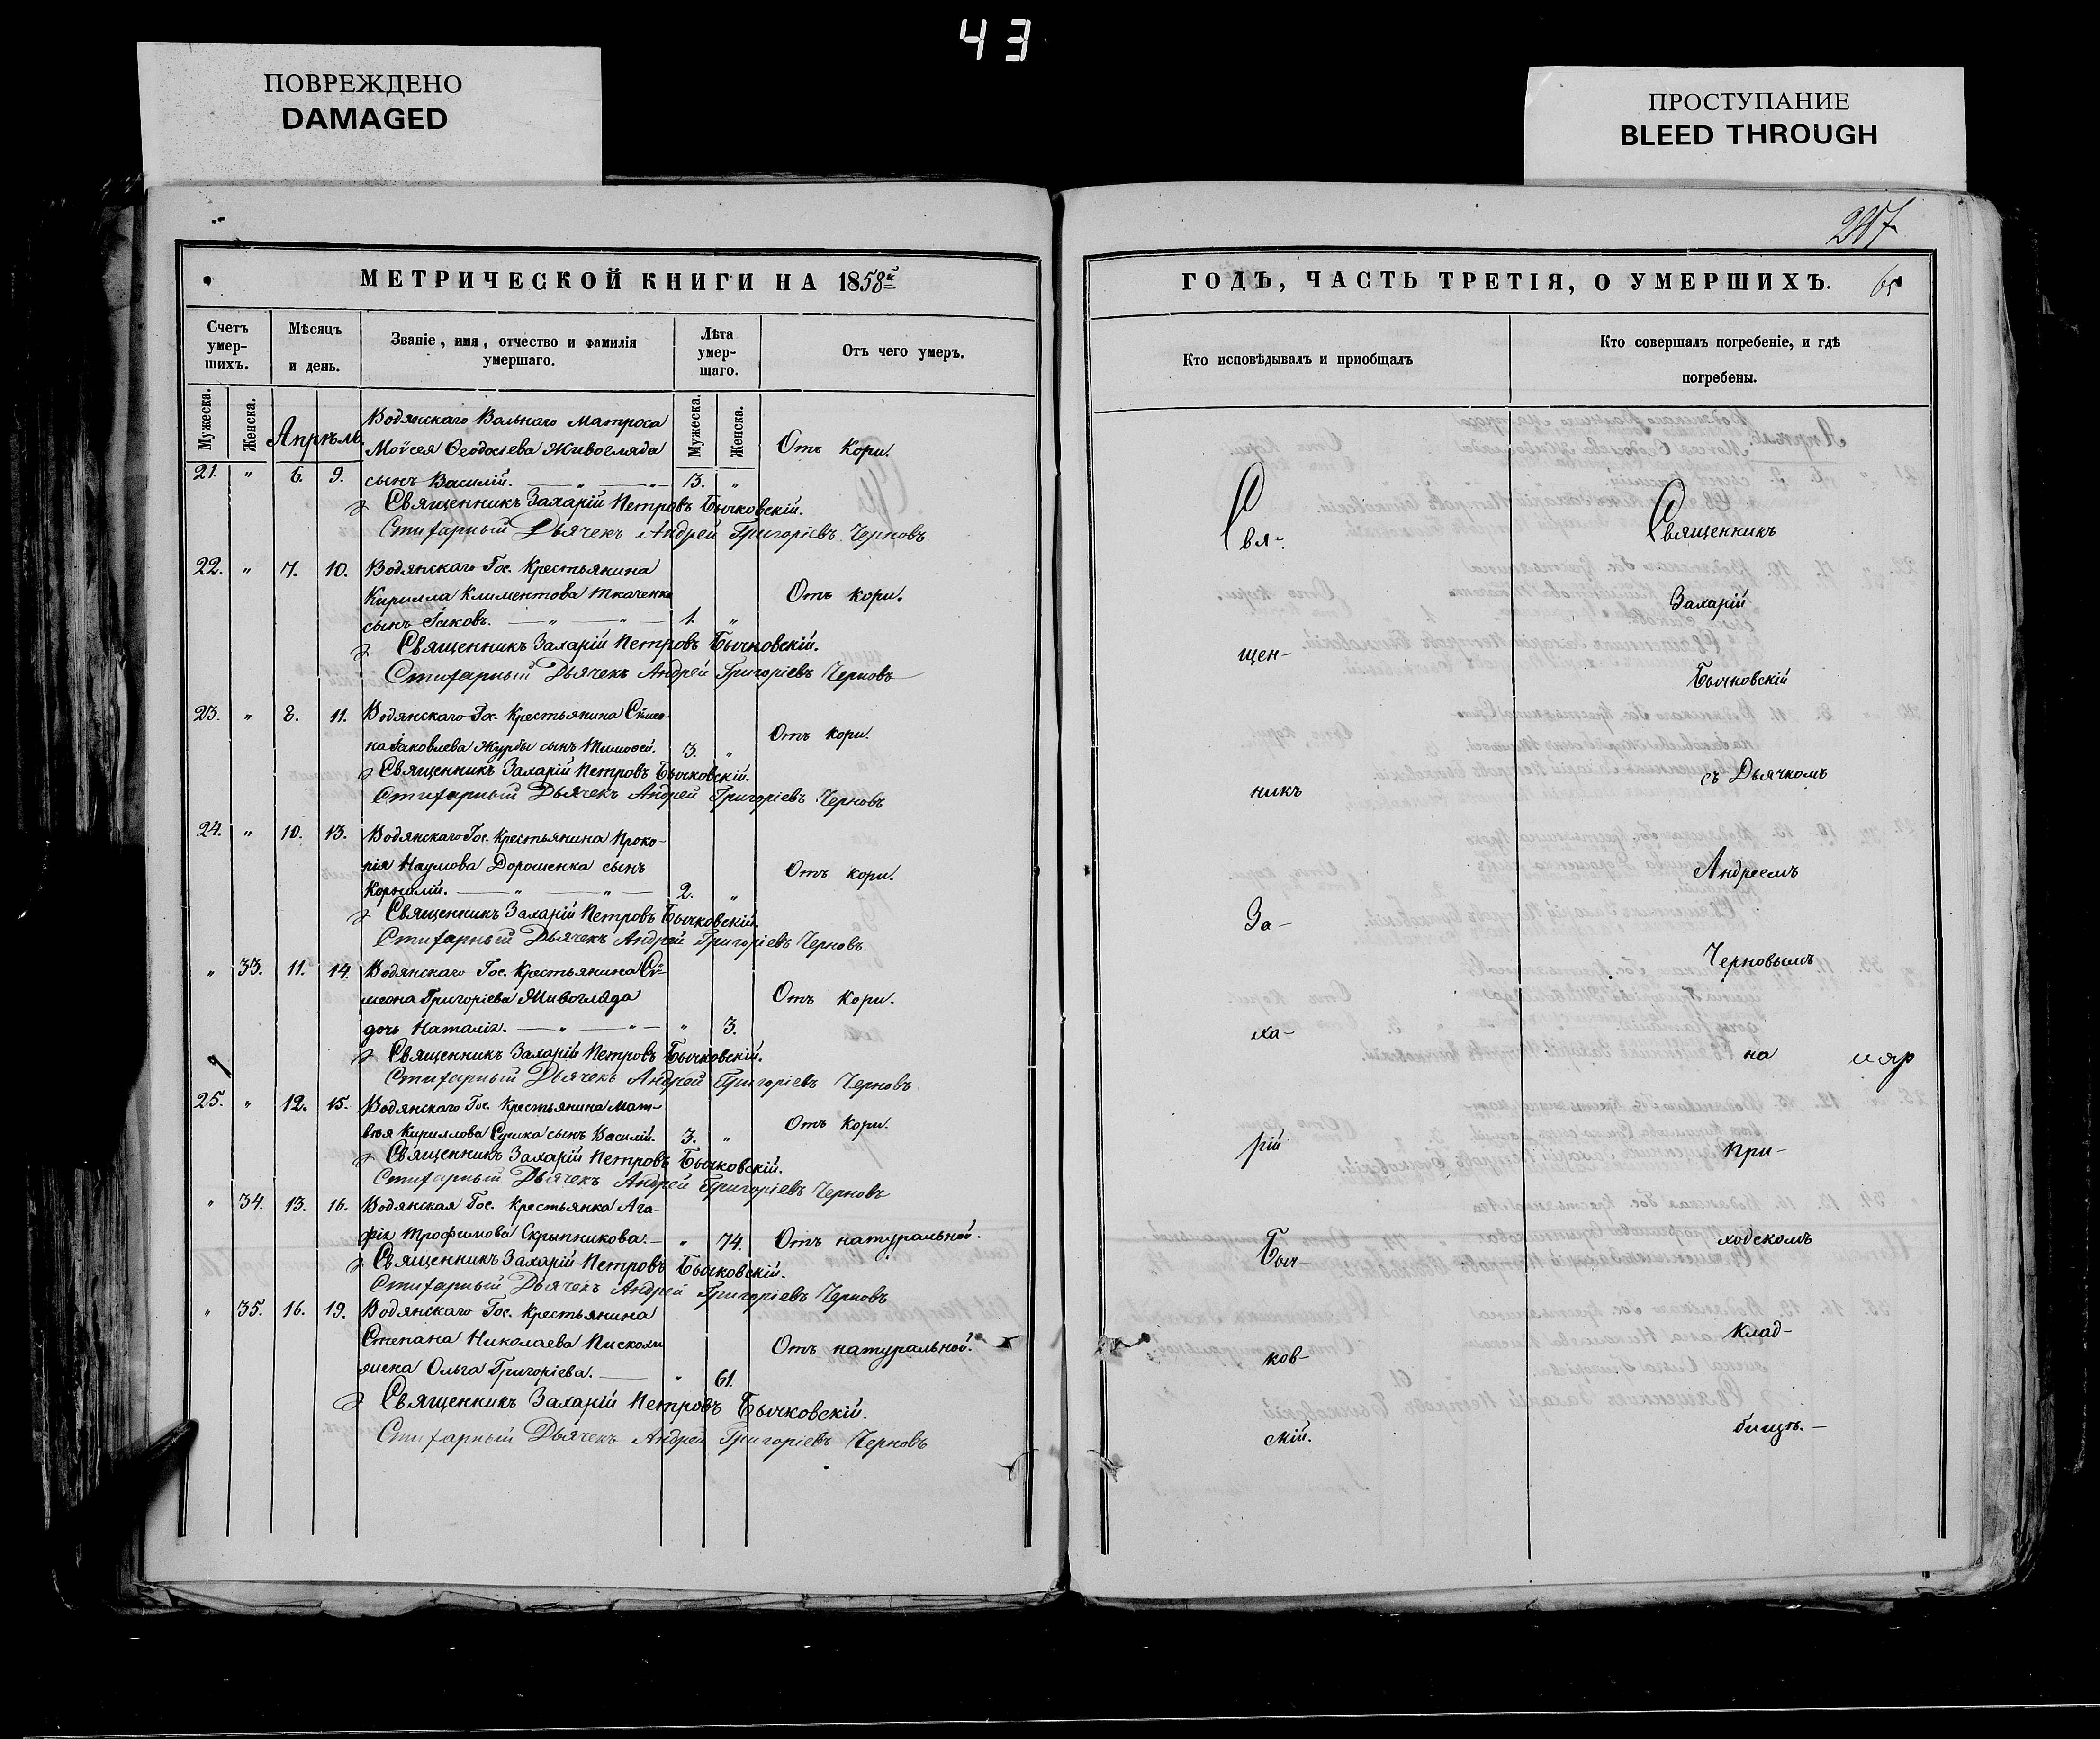 43
ПОВРЕЖДЕНО
DAMAGED
ПРОСТУПАНИЕ
BLEED THROUGH
МЕТРИЧЕСКОЙ КНИГИ НА 1858й
Счетъ умер-шихъ.
Мужеска.
Женска.
Мѣсяцъ и день.
Званіе, имя, отчество и фамилія умершаго.
Лѣта умер-шаго.
Мужеска.
Женска.
Отъ чего умеръ.
Апрѣль.
Водянскаго Вольнаго Матроса
Моѵсея Ѳеодосіева Живогляда Отъ кори.
21. " 6. 9. сынъ Василій. — " — " — 3. "
Священникъ Захарій Петровъ Бычковскій.
Стихарный Дьячекъ Андрей Григоріевъ Черновъ
22. " 7. 10. Водянскаго Гос. Крестьянина
Кирилла Климентова Ткаченка Отъ кори.
сынъ Іаковъ. — " — " — 1. "
Священникъ Захарій Петровъ Бычковскій.
Стихарный Дьячекъ Андрей Григоріевъ Черновъ
23. " 8. 11. Водянскаго Гос. Крестьянина Сѵмео-
на Іаковлева Журбы сынъ Тимофей. 3. " Отъ кори.
Священникъ Захарій Петровъ Бычковскій.
Стихарный Дьячекъ Андрей Григоріевъ Черновъ
24. " 10. 13. Водянскаго Гос. Крестьянина Проко-
пія Наумова Дорошенка сынъ Отъ кори.
Корнилій. — " — " — 2. "
Священникъ Захарій Петровъ Бычковскій.
Стихарный Дьячекъ Андрей Григоріевъ Черновъ.
" 33. 11. 14. Водянскаго Гос. Крестьянина Сѵ-
меона Григоріева Живогляда Отъ кори.
дочь Наталія. — " — " — " 3.
Священникъ Захарій Петровъ Бычковскій.
Стихарный Дьячекъ Андрей Григоріевъ Черновъ
25. " 12. 15. Водянскаго Гос. Крестьянина Мат-
вѣя Кириллова Сушка сынъ Василій. 3. " Отъ кори.
Священникъ Захарій Петровъ Бычковскій.
Стихарный Дьячекъ Андрей Григоріевъ Черновъ
" 34. 13. 16. Водянская Гос. Крестьянка Ага-
фія Трофимова Скрыпникова. — " 74. Отъ натуральной.
Священникъ Захарій Петровъ Бычковскій.
Стихарный Дьячекъ Андрей Григоріевъ Черновъ
" 35. 16. 19. Водянскаго Гос. Крестьянина
Степана Николаева Отъ натуральной.
жена Ольга Григоріева. — " 61.
Священникъ Захарій Петровъ Бычковскій.
Стихарный Дьячекъ Андрей Григоріевъ Черновъ
ГОДЪ, ЧАСТЬ ТРЕТІЯ, О УМЕРШИХЪ.
65
Кто исповѣдывалъ и приобщалъ
Кто совершалъ погребеніе, и гдѣ
погребены.
Свя-
щен-
никъ
За-
ха-
рій
Быч-
ков-
скій.
Священникъ
Захарій
Бычковскій
съ Дьячкомъ
Андреемъ
Черновымъ
на
При-
ходскомъ
клад-
бищѣ. —